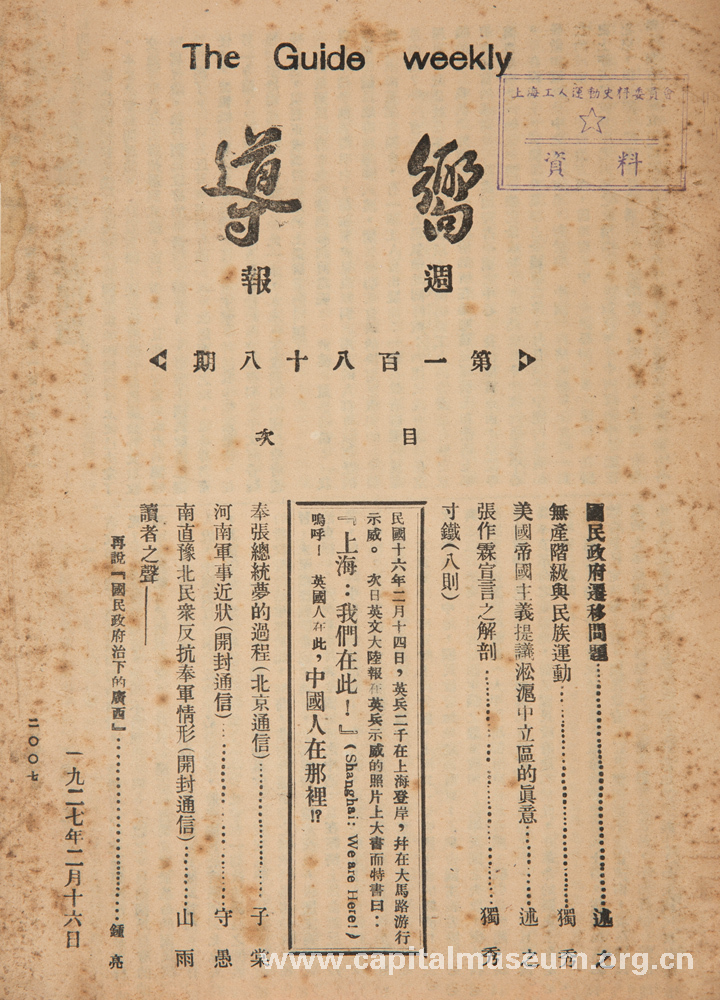 The Guide weekly
上海工人運動史料委員會
資料
嚮導
週報
第一百八十八期
目次
國民政府遷移問題 述之
無產階級與民族運動 獨秀
美國帝國主義提議淞滬中立區的眞意 述之
張作霖宣言之解剖 獨秀
寸鐵(八則)
民國十六年二月十四日,英兵二千在上海登岸,幷在大馬路游行
示威。次日英文大陸報在英兵示威的照片上大書而特書曰:
『上海:我們在此!』(Shanghai: We are Here!)
嗚呼! 英國人在此,中國人在那裡!?
奉張總統夢的過程(北京通信) 子棠
河南軍事近狀(開封通信) 守愚
南直豫北民衆反抗奉軍情形(開封通信) 山雨
讀者之聲——
再說『國民政府治下的廣西』 鍾亮
一九二七年二月十六日
二〇〇七
www.capitalmuseum.org.cn